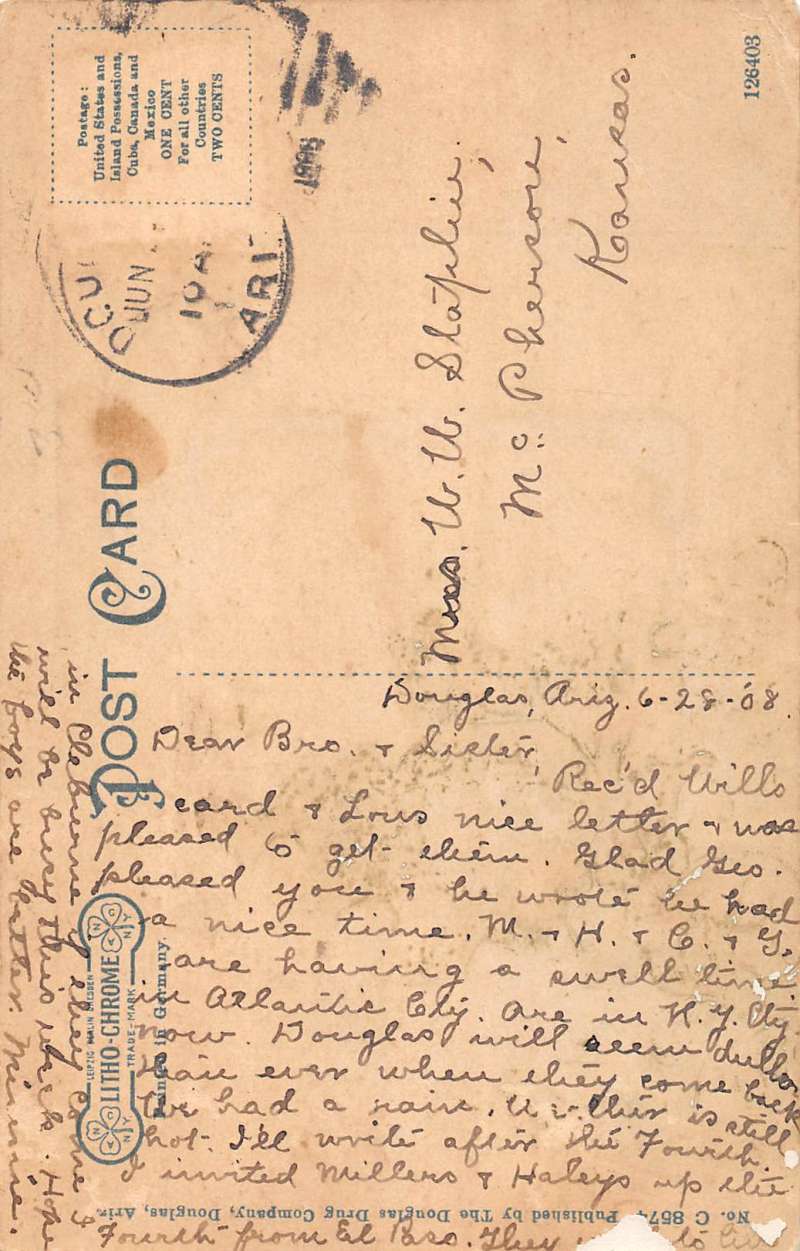 POST CARD
Postage:
United States and
Island Possessions,
Cuba, Canada and
Mexico
ONE CENT
For all other
Countries
TWO CENTS
JUN
10 A
ARI
126403
W. W. Staplin,
Mc Pherson,
Kansas.
Douglas, Ariz. 6-28-08.
Dear Bro. & Sister,
Rec'd Wills
card & Lous nice letter & was
pleased to get them. Glad Geo.
pleased you & he wrote he had
a nice time. M. & H. & C. & G.
are having a swell time
in Atlantic City. Are in N.Y. City
now. Douglas will seem duller
than ever when they come back
We had a rain. Weather is still
hot. I'll write after the Fourth.
I invited Millers & Haleys up the
Fourth from El Paso. They to live
in Cleburne if they come I
will be busy this week. Hope
the boys are better. Minnie.
LEIPZIG BERLIN DRESDEN
LITHO-CHROME
TRADE-MARK
Made in Germany.
No. C 8574 Published by The Douglas Drug Company, Douglas, Ariz.